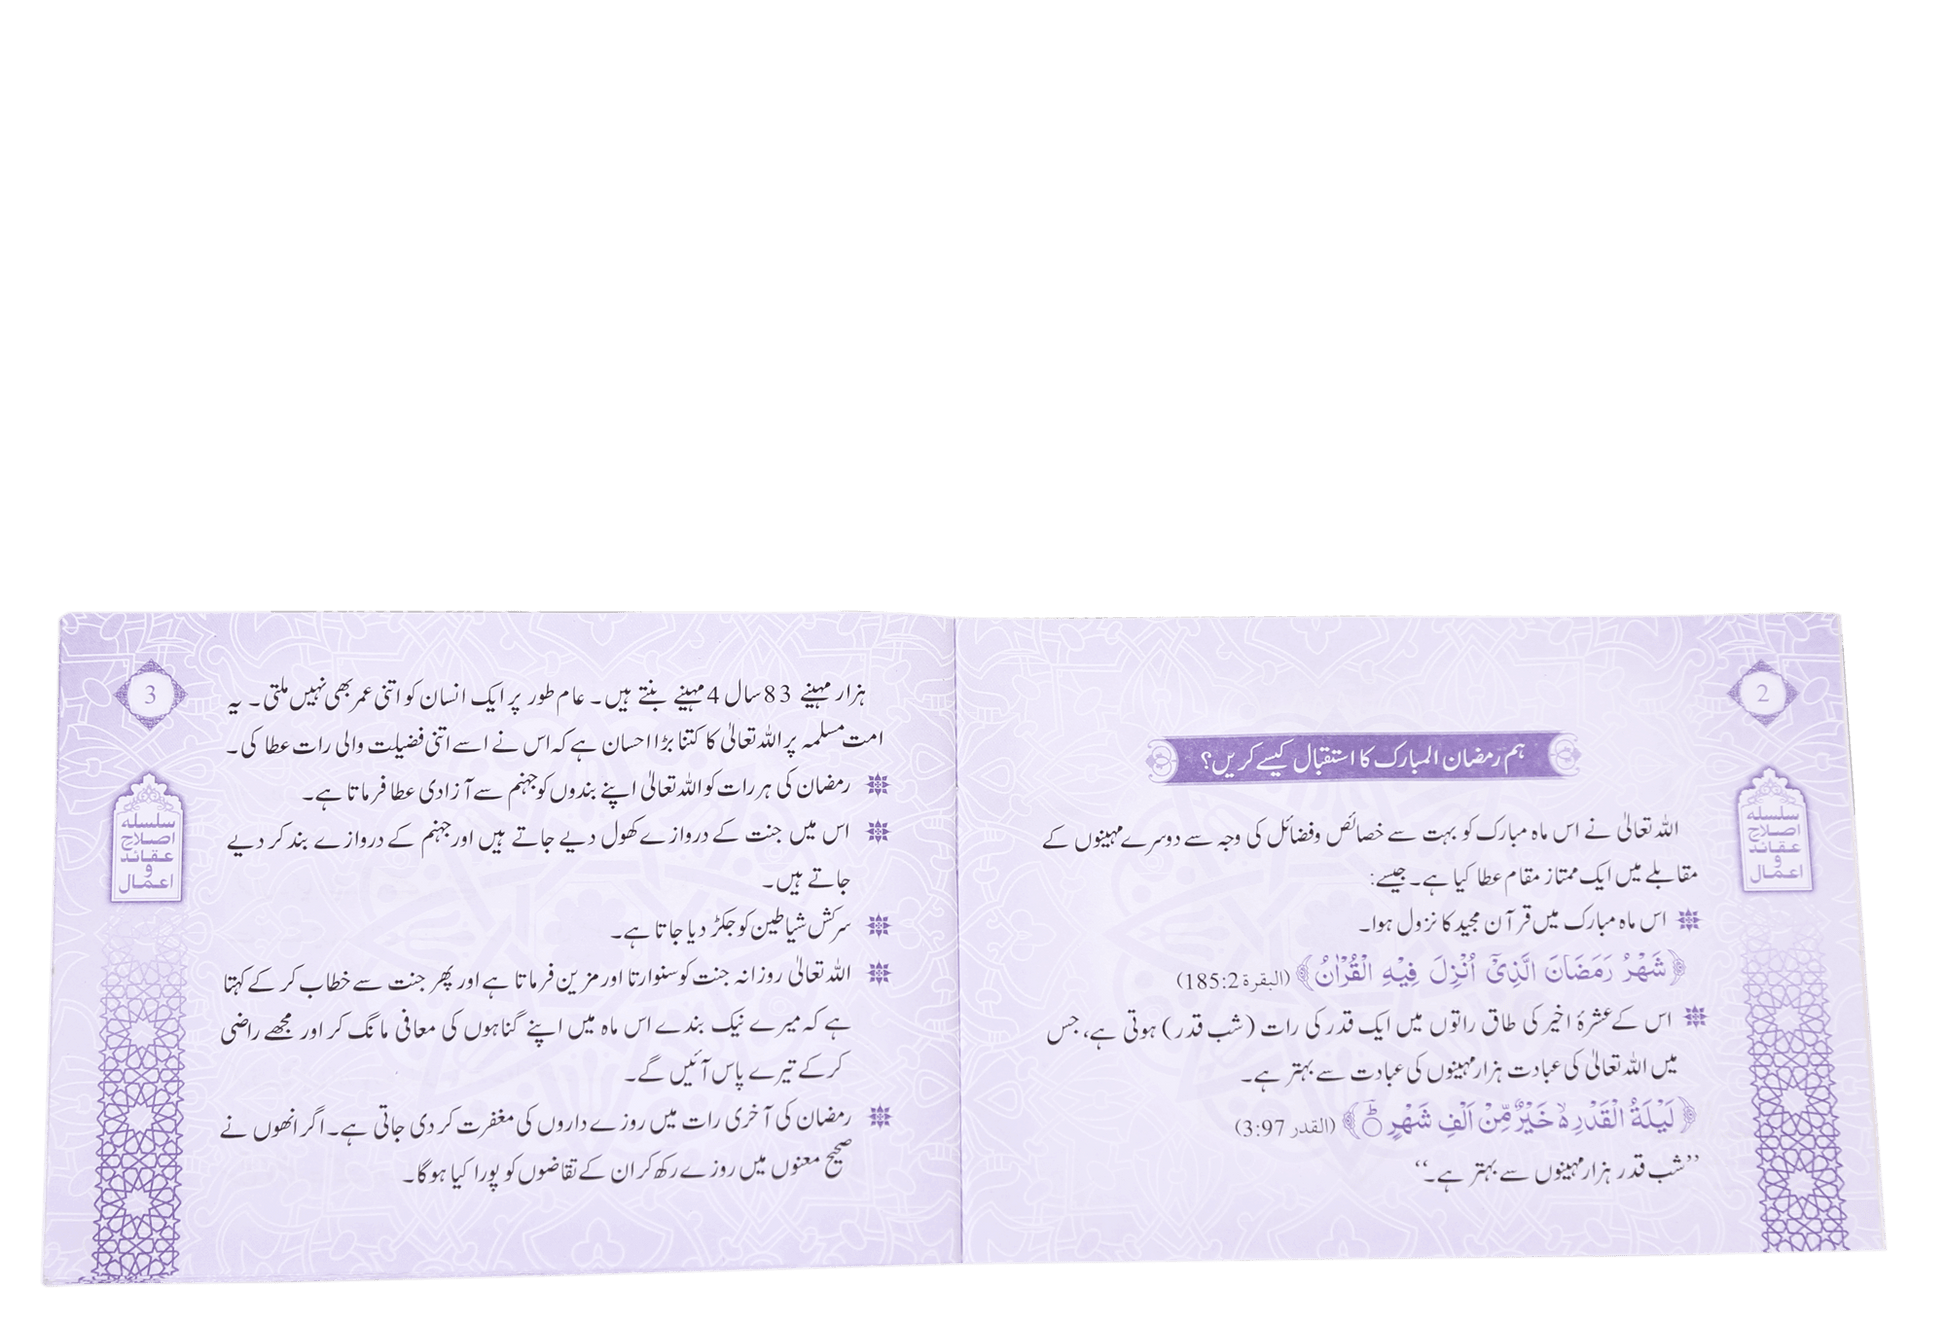 2
سلسلہ
اصلاح
عقائد
و
اعمال
ہم رمضان المبارک کا استقبال کیسے کریں؟
اللہ تعالیٰ نے اس ماہ مبارک کو بہت سے خصائص وفضائل کی وجہ سے دوسرے مہینوں کے
مقابلے میں ایک ممتاز مقام عطا کیا ہے۔ جیسے:
اس ماہ مبارک میں قرآن مجید کا نزول ہوا۔
﴿شَهْرُ رَمَضَانَ الَّذِیْۤ اُنْزِلَ فِیْهِ الْقُرْاٰنُ﴾ (البقرة 185:2)
اس کے عشرۂ اخیر کی طاق راتوں میں ایک قدر کی رات (شب قدر) ہوتی ہے، جس
میں اللہ تعالیٰ کی عبادت ہزار مہینوں کی عبادت سے بہتر ہے۔
﴿لَیْلَةُ الْقَدْرِ ۙ۬ خَیْرٌ مِّنْ اَلْفِ شَهْرٍ ؕ﴾ (القدر 3:97)
”شب قدر ہزار مہینوں سے بہتر ہے۔“
3
سلسلہ
اصلاح
عقائد
و
اعمال
ہزار مہینے 83 سال 4 مہینے بنتے ہیں۔ عام طور پر ایک انسان کو اتنی عمر بھی نہیں ملتی۔ یہ
امت مسلمہ پر اللہ تعالیٰ کا کتنا بڑا احسان ہے کہ اس نے اسے اتنی فضیلت والی رات عطا کی۔
رمضان کی ہر رات کو اللہ تعالیٰ اپنے بندوں کو جہنم سے آزادی عطا فرماتا ہے۔
اس میں جنت کے دروازے کھول دیے جاتے ہیں اور جہنم کے دروازے بند کر دیے
جاتے ہیں۔
سرکش شیاطین کو جکڑ دیا جاتا ہے۔
اللہ تعالیٰ روزانہ جنت کو سنوارتا اور مزین فرماتا ہے اور پھر جنت سے خطاب کر کے کہتا
ہے کہ میرے نیک بندے اس ماہ میں اپنے گناہوں کی معافی مانگ کر اور مجھے راضی
کر کے تیرے پاس آئیں گے۔
رمضان کی آخری رات میں روزے داروں کی مغفرت کر دی جاتی ہے۔ اگر انھوں نے
صحیح معنوں میں روزے رکھ کر ان کے تقاضوں کو پورا کیا ہوگا۔